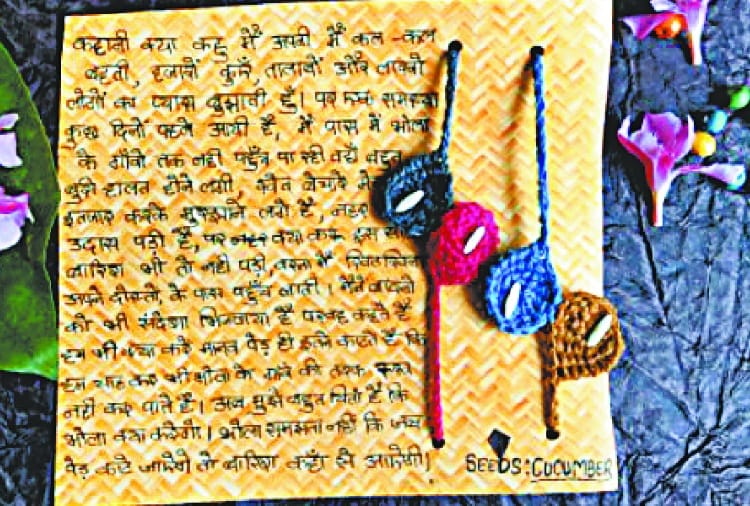 कहानी क्या कहु मैं अपनी मैं कल-कल
बहती, हजारों कुएँ, तालाबों और लाखों
लोगों का प्यास बुझाती हूँ। पर एक समस्या
कुछ दिनों पहले आयी है, मैं पास में भोला
के गाँवों तक नहीं पहुँच पा रही वहाँ बहुत
बुरी हालत होने लगी, खेत बेचारे मेरा
इंतजार करके मुरझाने लगे है, नहर
उदास पड़ी है, पर क्या करू इस साल
बारिश भी तो नहीं पड़ी, वरना मैं
अपने दोस्तो के पास पहुँच जाती। मैंने बादलो
को भी संदेशा भिजवाया है पर वह कहते है
हम भी क्या करे मानव पेड़ ही इतने काटते है कि
हम चाह कर भी भोला के गांव की तरफ
नहीं कर पाते है। अब मुझे बहुत चिंता है कि
भोला क्या करेगा। भोला समझता नहीं कि जब
पेड़ काटे जायेगे तो बारिश कहाँ से आयेगी।
SEEDS: CUCUMBER